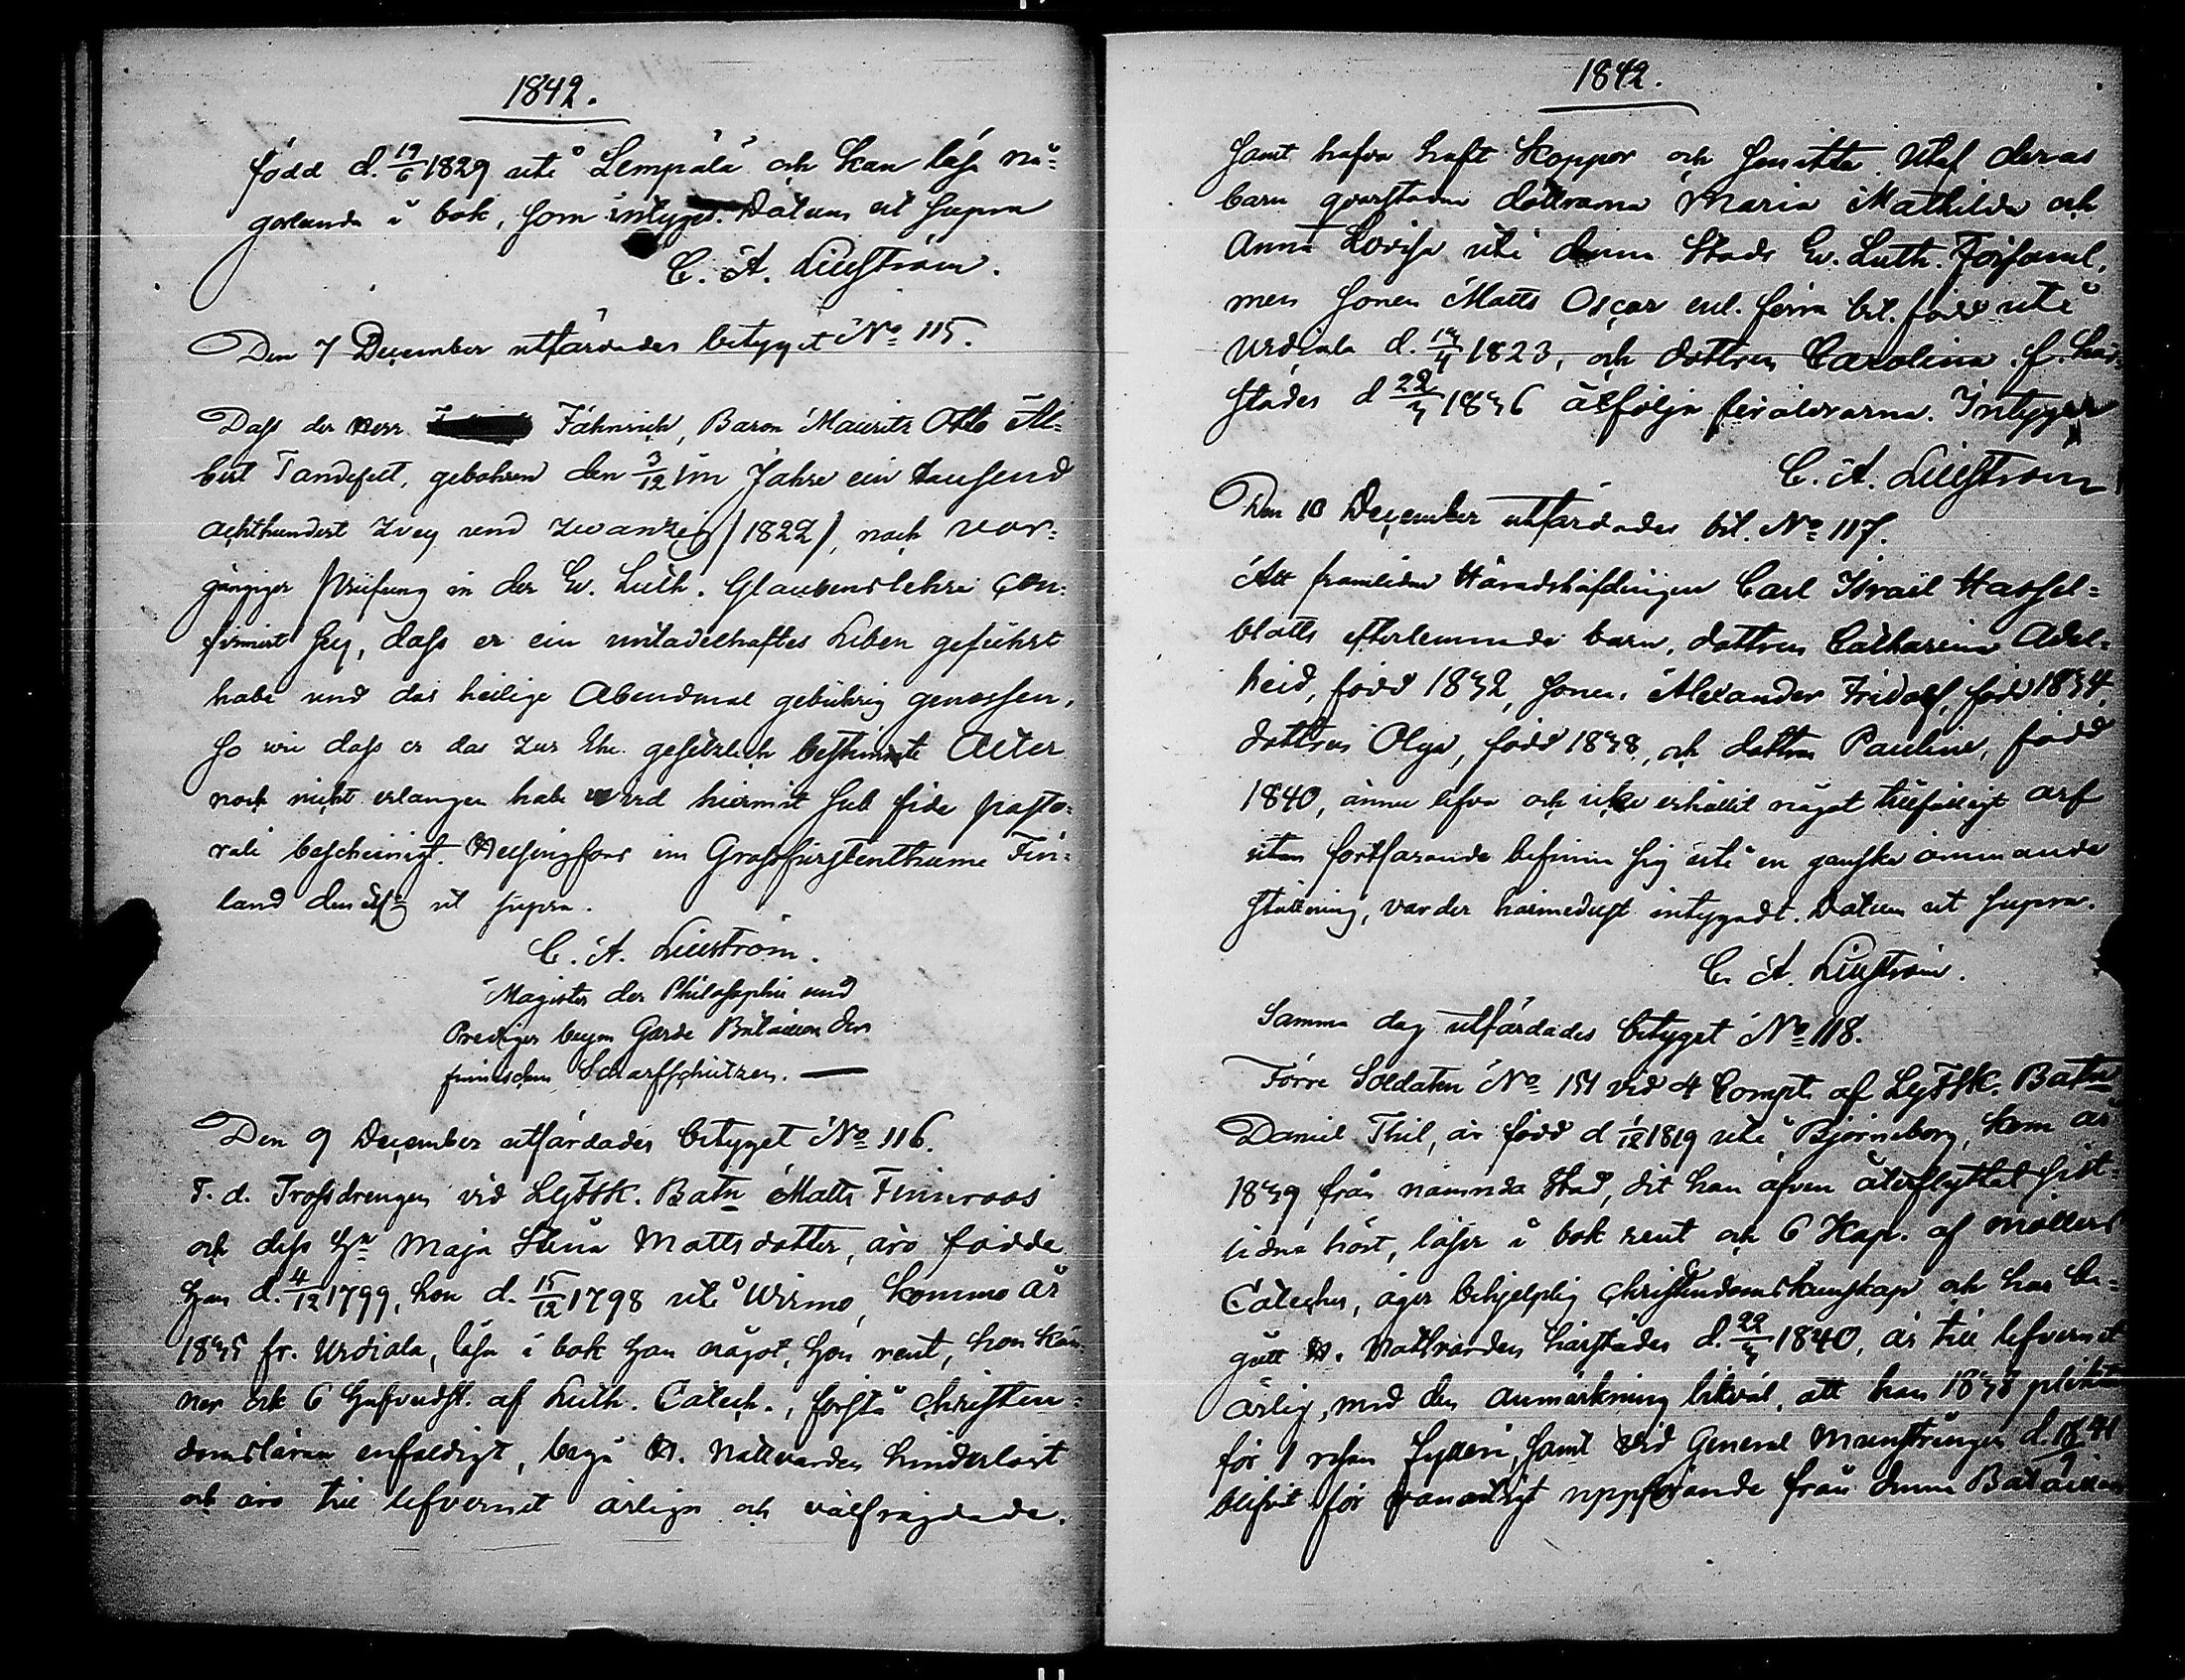 1842.
född d. 19/6 1829 uti Lempälä och kan läsa nå=
gorlunda i bok, som intygas. Datum ut supra
C. A. Lilistrom.
Den 7 December utfärdades betyget No 115.
Dass der Herr Fähnrich, Baron Mauritz Otto Al=
bert Tandefelt, gebohren den 3/12 im Jahre ein tausend
achthundert zvey und zwanzig /1822/, nach vor=
gängiger Prüfung in der Ev. Luth. Glaubenslehre con=
firmirt sey, dass er ein untadelhaftes Leben geführt
habe und das heilige Abendmal gebührig genossen,
so wie dass er das zur Ehe gesetzlich bestimte Alter
noch nicht erlangen habe wird hiermit sub fide pasto=
rali bescheinigt. Helsingfors im Grossfürstenthume Fin=
land den ut supra.
C. A. Lilistrom.
Magister der Philosophie und
Prediger beym Garde Bataillon der
finnischen Scharfschützen. —
Den 9 December utfärdades betyget No 116.
F. d. Trossdrengen vid LgFSk. Batn Matts Finnroos
och dess Hu Maja Stina Mattsdotter, äro födde
Han d. 4/12 1799, hon d. 15/12 1798 uti Wirmo, kommo år
1835 fr. Urdiala, läsa i bok han något, hon rent, hon kän=
ner ock 6 Hufvudst. af Luth. Catech., förstå christen=
domsläran enfaldigt, begå H. Nattvarden hinderlöst
och äro till lefvernet ärliga och välfrägdade.
1842.
samt hafva haft koppor och smitta. Utaf deras
barn qvarstadna döttrarna Maria Mathilda och
Anna Lovisa uti denna Stads Ev. Luth. Församl.
men sonen Matts Oscar enl. förra bet. född uti
Urdiala d. 1823, och dottren Carolina f. här=
städes d 22/3 1836 åtfölja föräldrarna. Intygar
C. A. Lilistrom
Den 10 December utfärdades bet. No 117.
Att framlidne Häradshöfdingen Carl Israël Hassel=
blatts efterlemnade barn, dottren Catharina Adel=
heid, född 1832, sonen Alexander Fridolf, född 1834,
dottren Olga, född 1838, och dottren Pauline, född
1840, ännu lefva och icke erhållit något tillfälligt arf
utan fortfarande befinna sig uti en ganska ömmande
ställning, varder härmedelst intygadt. Datum ut supra.
C. A. Lilistrom.
Samma dag utfärdades betyget No 118.
Förre Soldaten No 151 vid 4 Compt. af LgFSk. Batn
Daniel Thil, är född d 1/12 1819 uti Björneborg, kom år
1839 från nämnda Stad, dit han äfven återflyttat sist=
lidne höst, läser i bok rent och 6 Kap. af Möllers
Cateches, äger behjelplig christendomskunskap och har be=
gått H. Nattvarden härstädes d. 22/3 1840, är till lefvernet
ärlig, med den anmärkning likväl, att han 1838 pliktat
för 1 resan fylleri, samt vid General Mönstringen d. 41
blifvit för vanartigt uppförande från denna Bataillon